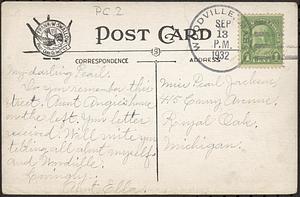 P.C. 2
POST CARD
WOODVILLE,
SEP
13
P.M.
1932
CORRESPONDENCE
ADDRESS
My darling Pearl.
Do you remember this
street, Aunt Angie's house
on the left. Your letter
received. Will write you
telling all about myself
and Woodville.
Lovingly,
Aunt Ella.
Miss Pearl Jackson,
415 Avenue.
Royal Oak,
Michigan.